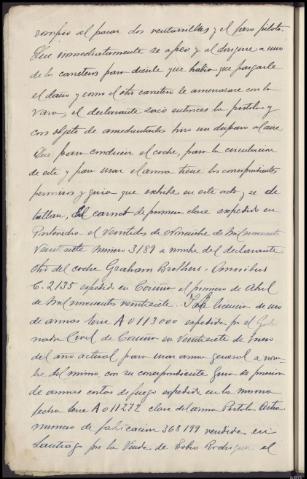 rompio al pasar dos ventanillas y el faro piloto.
Que inmediatamente se apeo y al dirigirse a uno
de los carreteros para decirle que habia que pagarle
el daño y como el otro carretero le amenazase con la
vara, el declarante sacó entonces la pistola y
con objeto de amedrentarlos hizo un disparo al aire
Que para conducir el coche, para la circulacion
de este y para usar el arma tiene los correspondientes
permisos y guia que exhibe en este acto, y se de
tallan, del carnet de primera clase expedido en
Pontevedra el Veintidos de de Mil novecientos
Veintisiete numero 3189 a nombre del declarante
Otro del coche Graham Brothers - Omnibus
C. 2135 expedido en Coruña el primero de Abril
de Mil novecientos veintisiete. licencia de uso
de armas serie A 0113000 expedida por el Gober
nador Civil de Coruña en Veintisiete de Enero
del año actual para usar arma general a nom
bre del mismo con su correspondiente Guia de posesion
de armas cortas de fuego expedida en la misma
fecha serie A 011272 clase del arma Pistola Astra
numero de fabricacion 368199 vendida en
Santiago por la Viuda de Pedro Rodriguez el